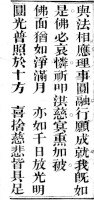 與法相應理事圓融行願成就我既如
是佛必哀憐祈叩洪慈宴熏加被
佛面猶如淨滿月　亦如千日放光明
圓光普照於十方　喜捨慈悲皆具足